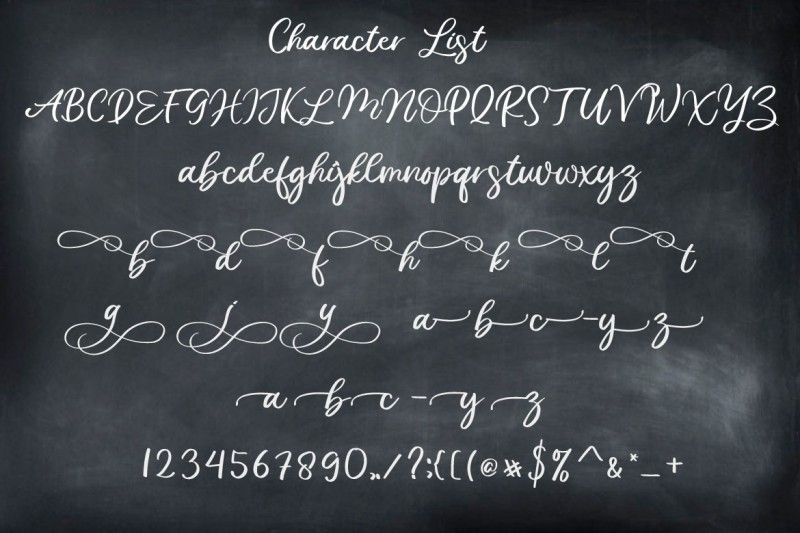 Character List
ABCDEFGHIJKLMNOPQRSTUVWXYZ
abcdefghijklmnopqrstuvwxyz
b d f h k l t
g j y a b c - y z
a b c - y z
1234567890.,/?;{[(@#$%^&*_+